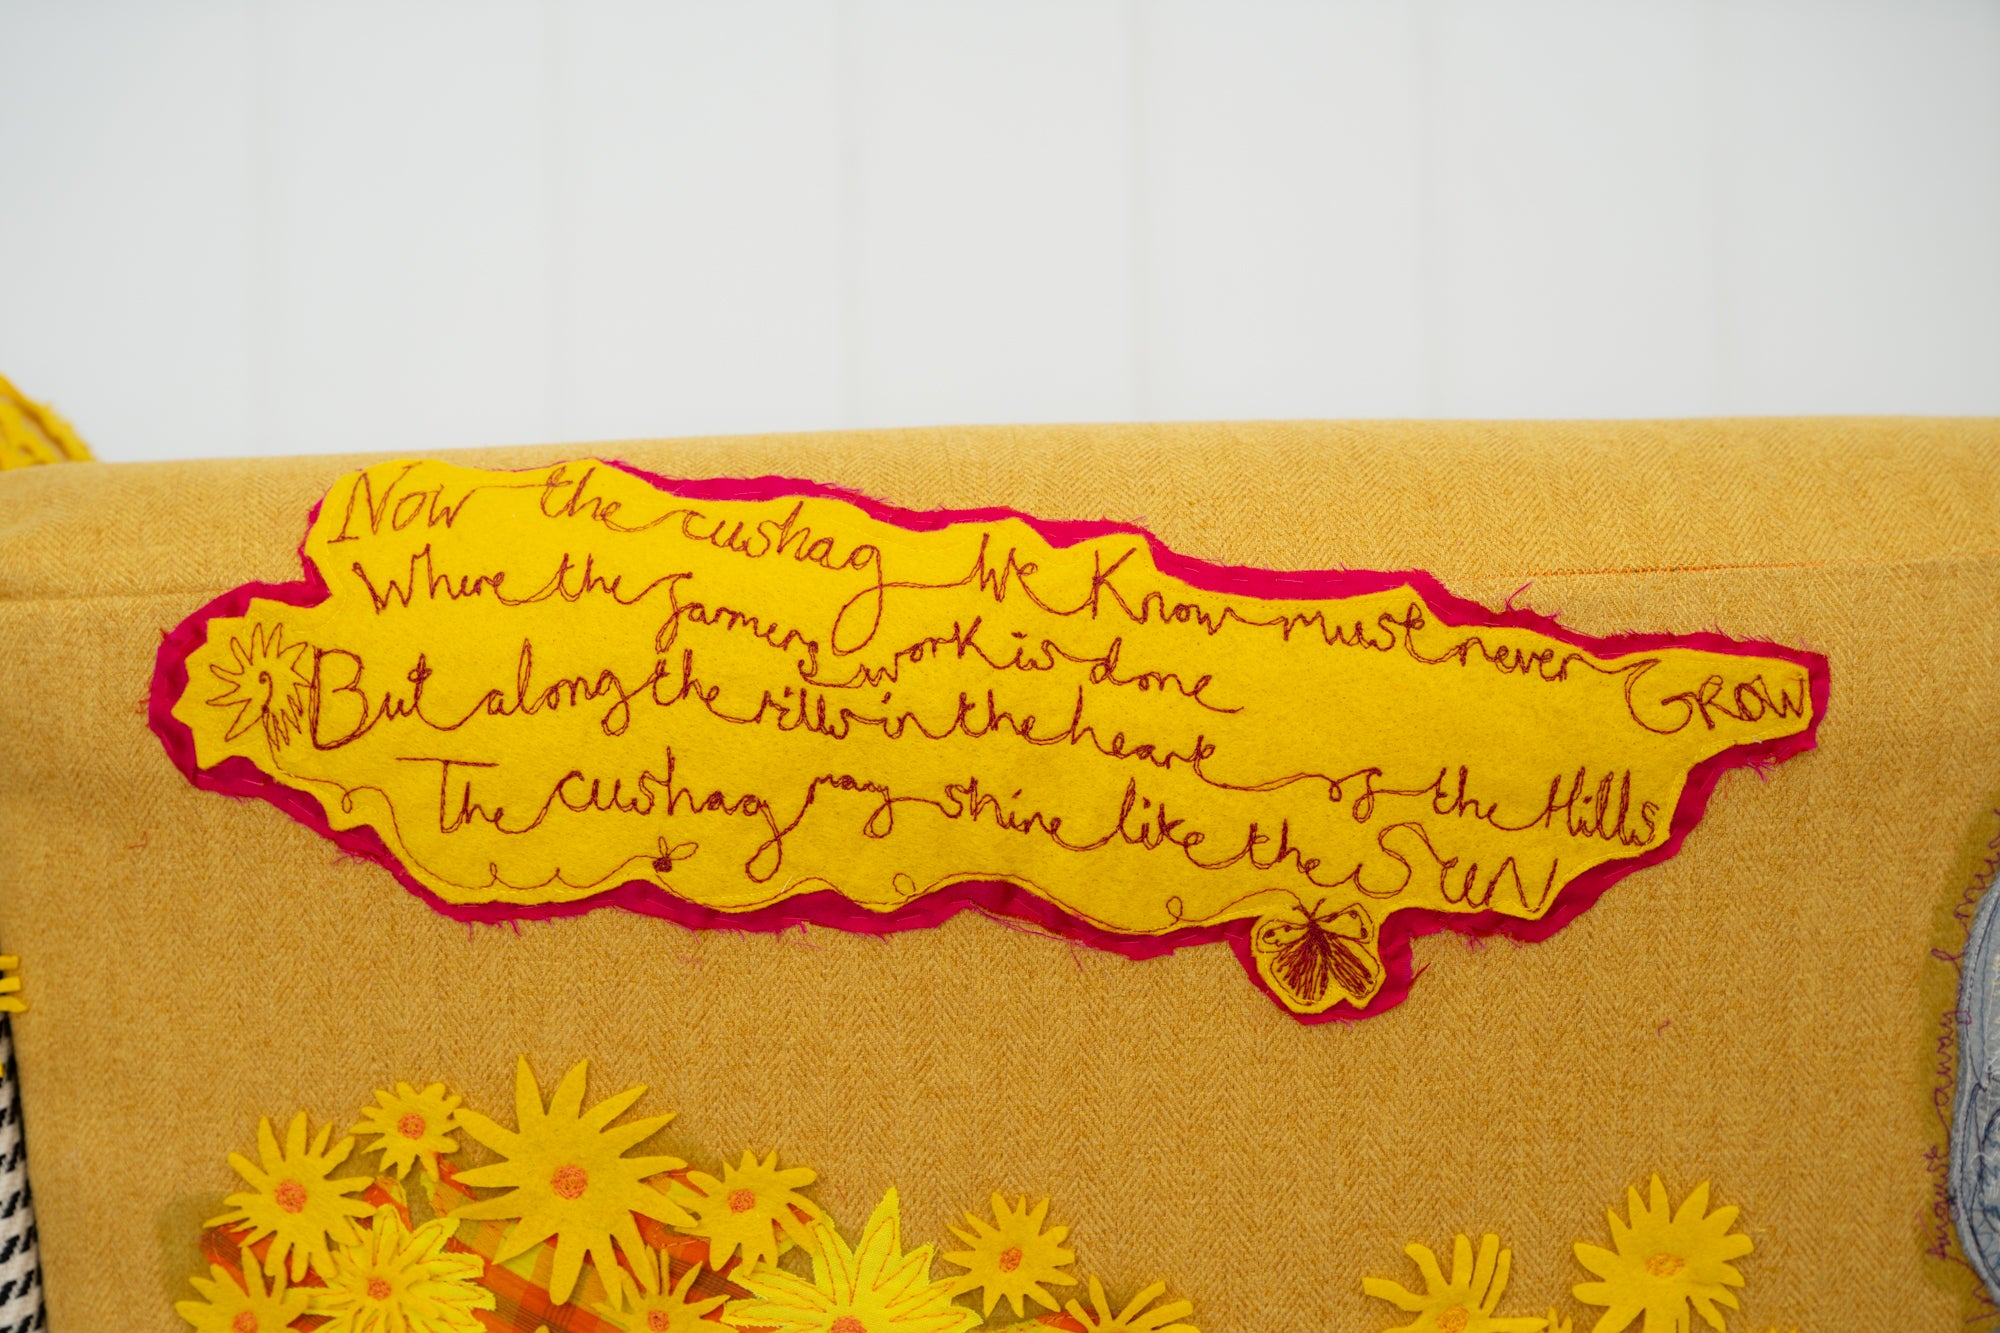 Now the cushag We Know must never GROW
Where the farmers work is done
But along the rills in the heart of the Hills
The cushag may shine like the SUN
August away I must